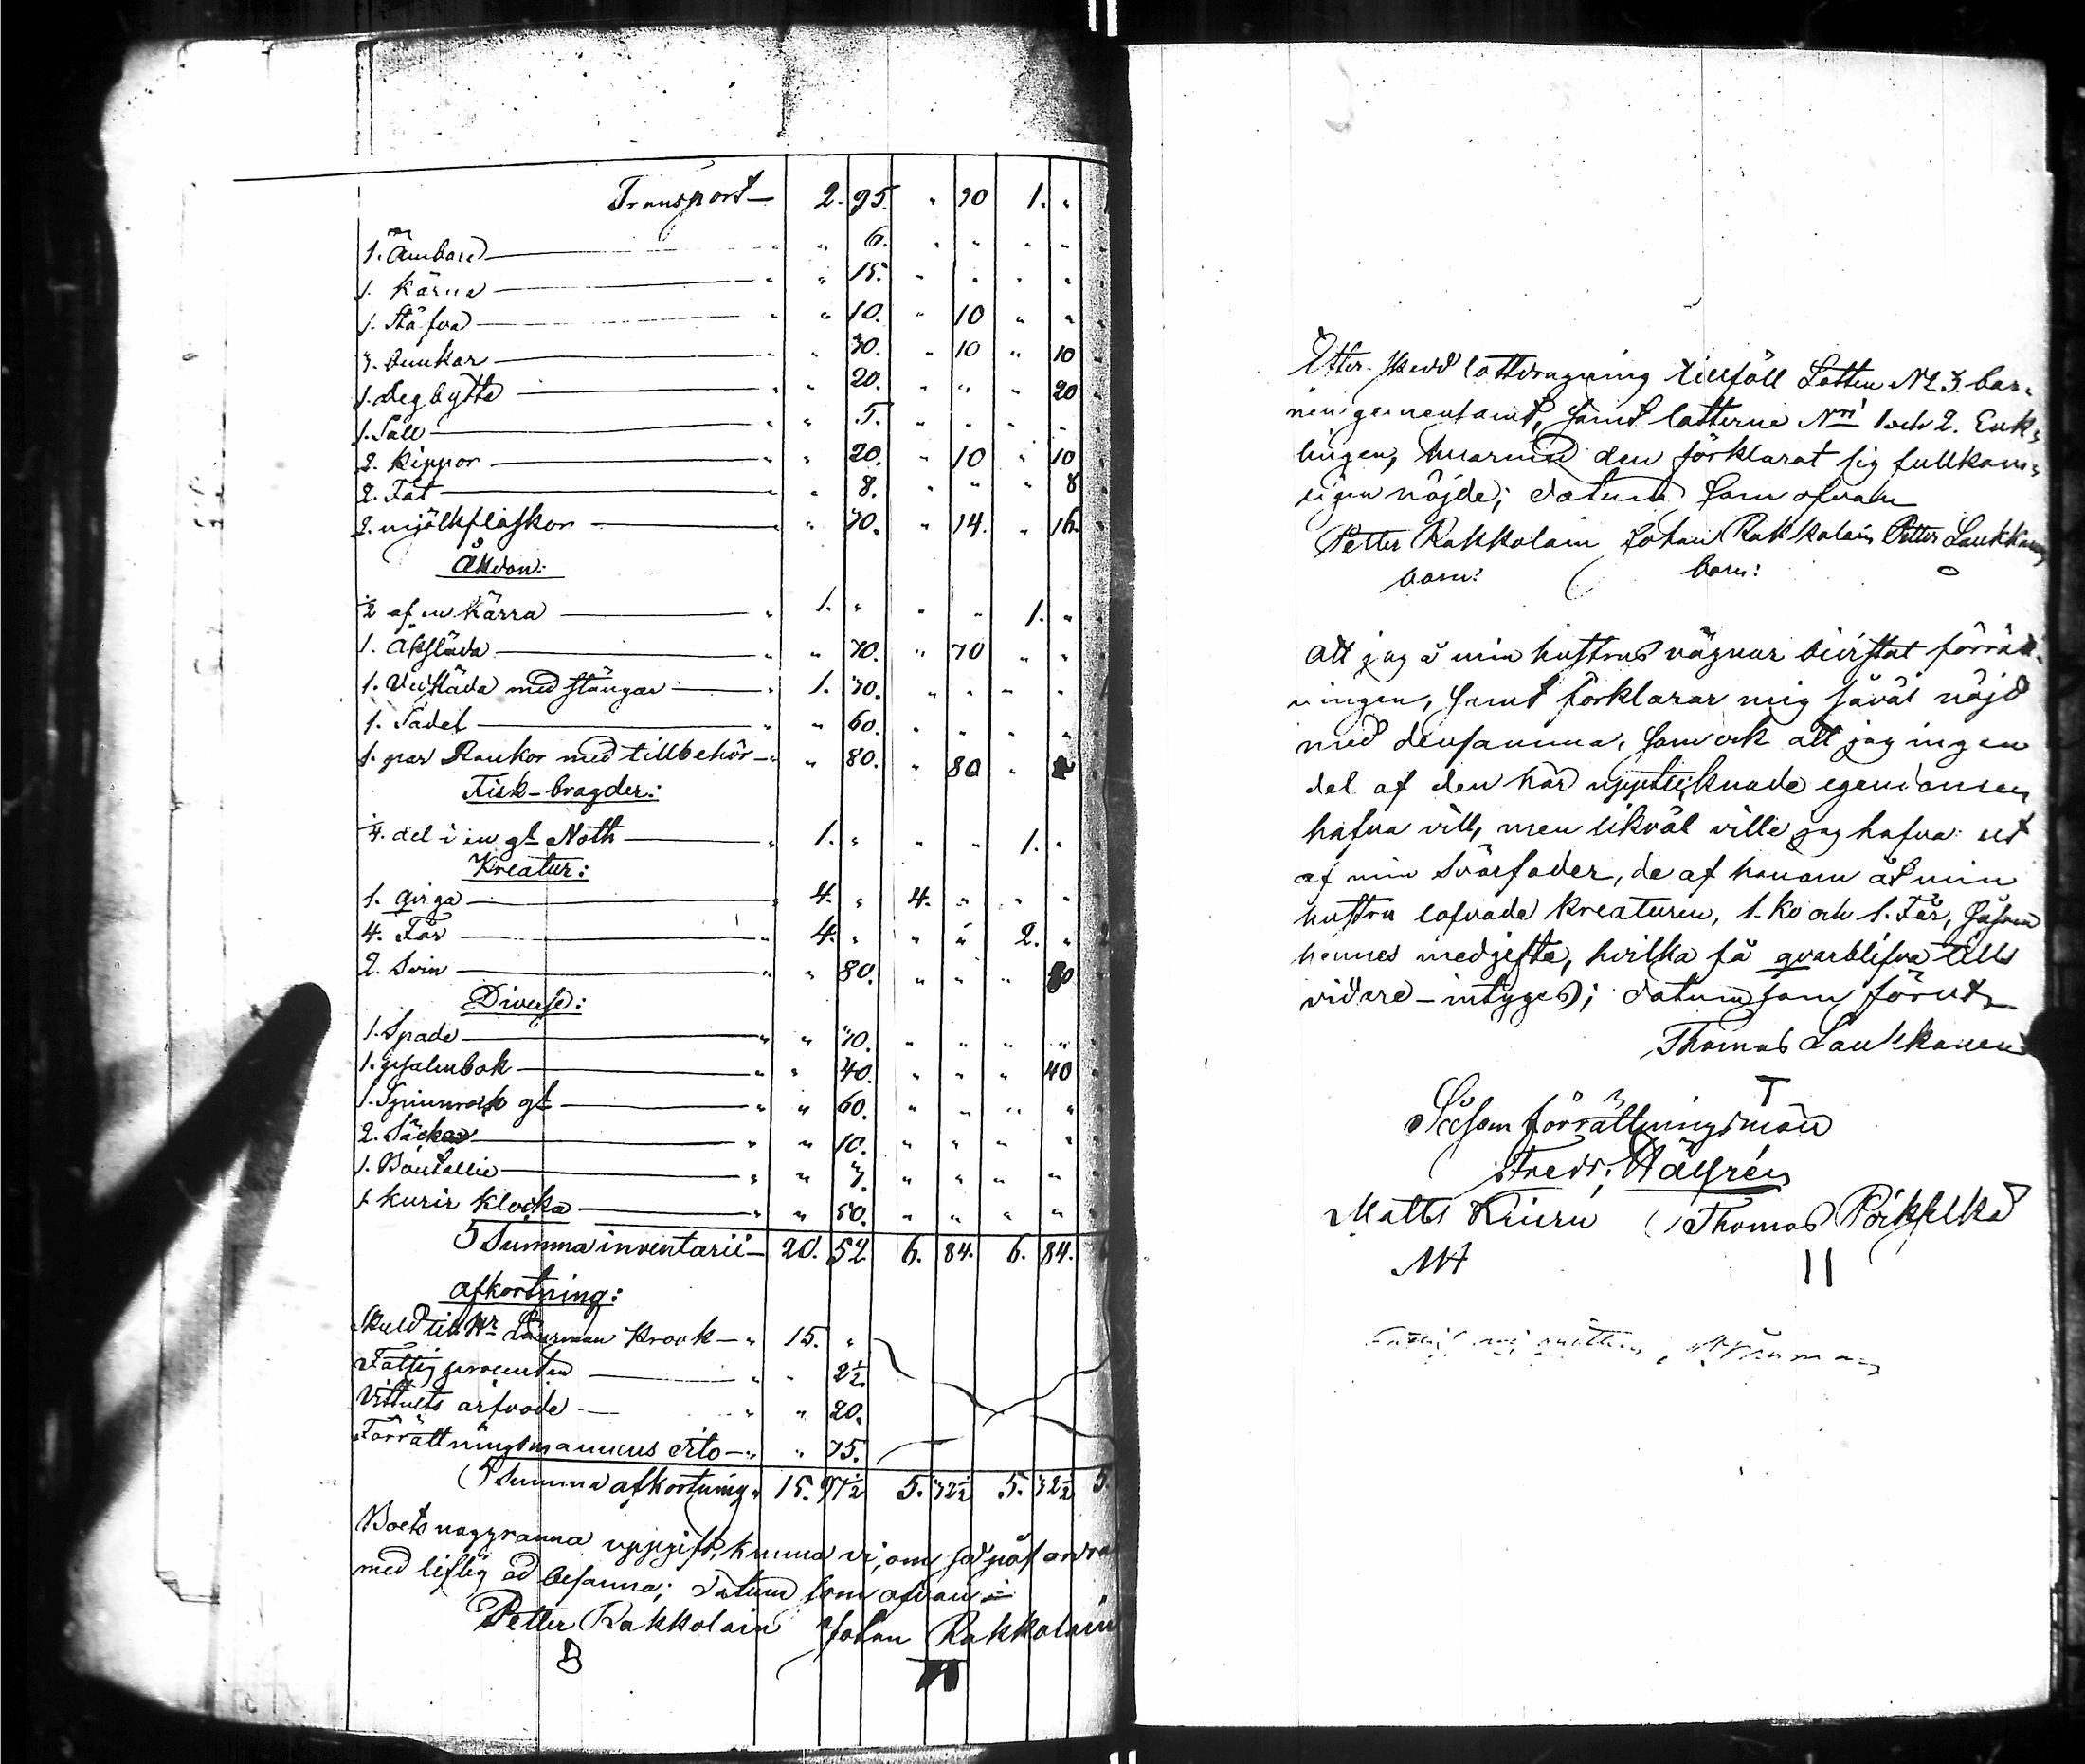 Transport — 2. 95. " 90 1. "
1. Ämbare " " 6. " " " "
1. Kärna " " 15. " " " "
1. Stäfva " " 10. " 10 " "
3. bunkar " " 30. " 10 " 10
1. degbytta " " 20. " " " 20
1. Såll " " 5. " " " "
2. Kippor " " 20. " 10 " 10
2. Fat " " 8. " " " 8
2. mjölkflaskor " " 30. " 14. " 16.
Åkdon:
½ af en Kärra " 1. " " " 1. "
1. Åksläda " " 70. " 70 " "
1. Vedsläda med stänger " 1. 30. " " " "
1. Sadel " " 60. " " " "
1. par Rankor med tillbehör " " 80. " 80 "
Fisk-bragder:
¼ del i en gl Noth " 1. " " " 1. "
Kreatur:
1. qviga " 4. " 4. " " "
4. Får " 4. " " " 2. "
2. Svin " " 80. " " "
Diverse:
1. Spade " " 30. " " " "
1. psalmbok " " 40. " " " 40
1. Spinnrock gl " " 60. " " " "
2. Säckar " " 10. " " " "
1. Boutellie " " 3. " " " "
1 kurir klocka " " 50. " " " "
Summa inventarii — 20. 52 6. 84. 6. 84.
Afkortning:
Skuld till Hr Länsman Krook — " 15. "
Fattigprocenten " " 2½
Vittnets arfvode — " " 20.
Förrättningsmannens dito — " " 75.
Summa afkortning " 15. 97½ 5. 32½ 5. 32½ 5.
Boets noggranna uppgift, kunna vi, om så påfordras
med liflig ed besanna; datum som ofvan
Petter Rakkolain Johan Rakkolain
Efter skedd lottdragning tillföll Lotten No 3. bar-
nen gemensamt, samt lotterne Nri 1 och 2. Enk-
lingen, hvarmed den förklarat sig fullkom-
ligen nöjde; datum som ofvan
Petter Rakkolain Johan Rakkolain Petter Laukkanen
bom: bom:
Att jag å min hustrus vägnar bivistat förrätt-
ningen, samt förklarar mig såväl nöjd
med densamma, som ock att jag ingen
del af den här upptecknade egendomen
hafva vill, men likväl ville jag hafva ut
af min Svärfader, de af honom åt min
hustru lofvade kreaturen, 1. Ko och 1. Får, såsom
hennes medgifte, hvilka få qvarblifva tills
vidare — intygas; datum som förut
Thomas Laukkanen
T
Såsom förrättningsmän
Fredr. Hägrén
Matts Kiuru Thomas Pöikselkä
MH II